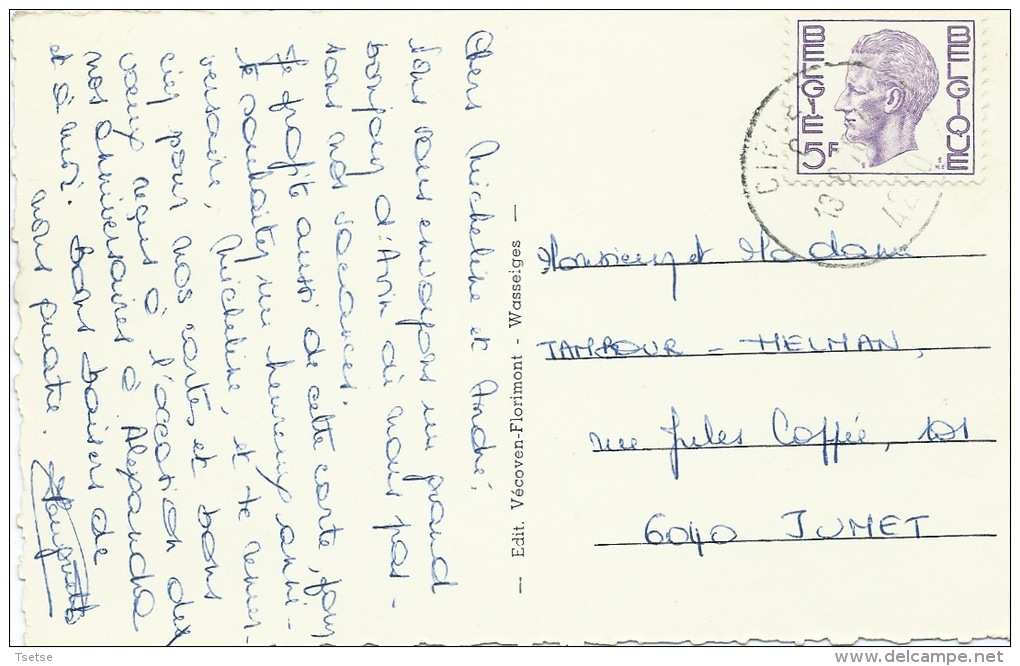 Chers Micheline et André,
Nous vous envoyons un grand
bonjour d'Avin où nous pas-
sons nos vacances.
Je profite aussi de cette carte, pour
te souhaiter un heureux anni-
versaire, Micheline, et te remer-
cier pour vos cartes et bons
vœux reçus à l'occasion des
nos anniversaires à Alexandra
et à moi. Bons baisers de
nous quatre.
— Edit. Vécoven-Florimont - Wasseiges —
BELGIE 5F BELGIQUE
13
Monsieur et Madame
TAMBOUR - HELMAN,
rue Jules Coffée, 101
6040 JUMET
Tsetse
www.delcampe.net